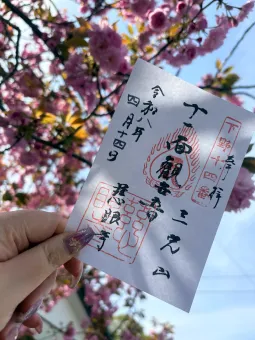 奉拝
下野十四番
三光山
十一面観世音
慈眼寺
令和八年
四月十四日